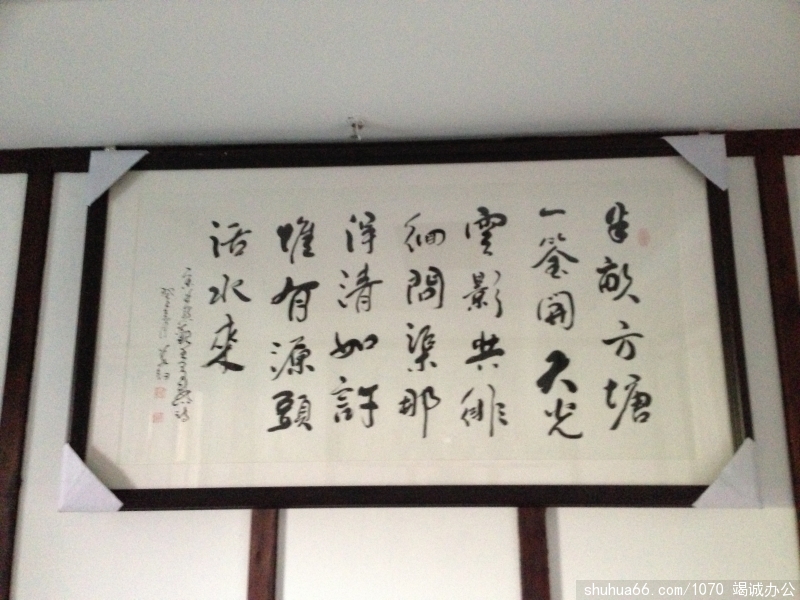 半畝方塘
一鉴開天光
雲影共徘
徊問渠那
得清如許
惟有源頭
活水來
shuhua66.com/1070 竭诚办公